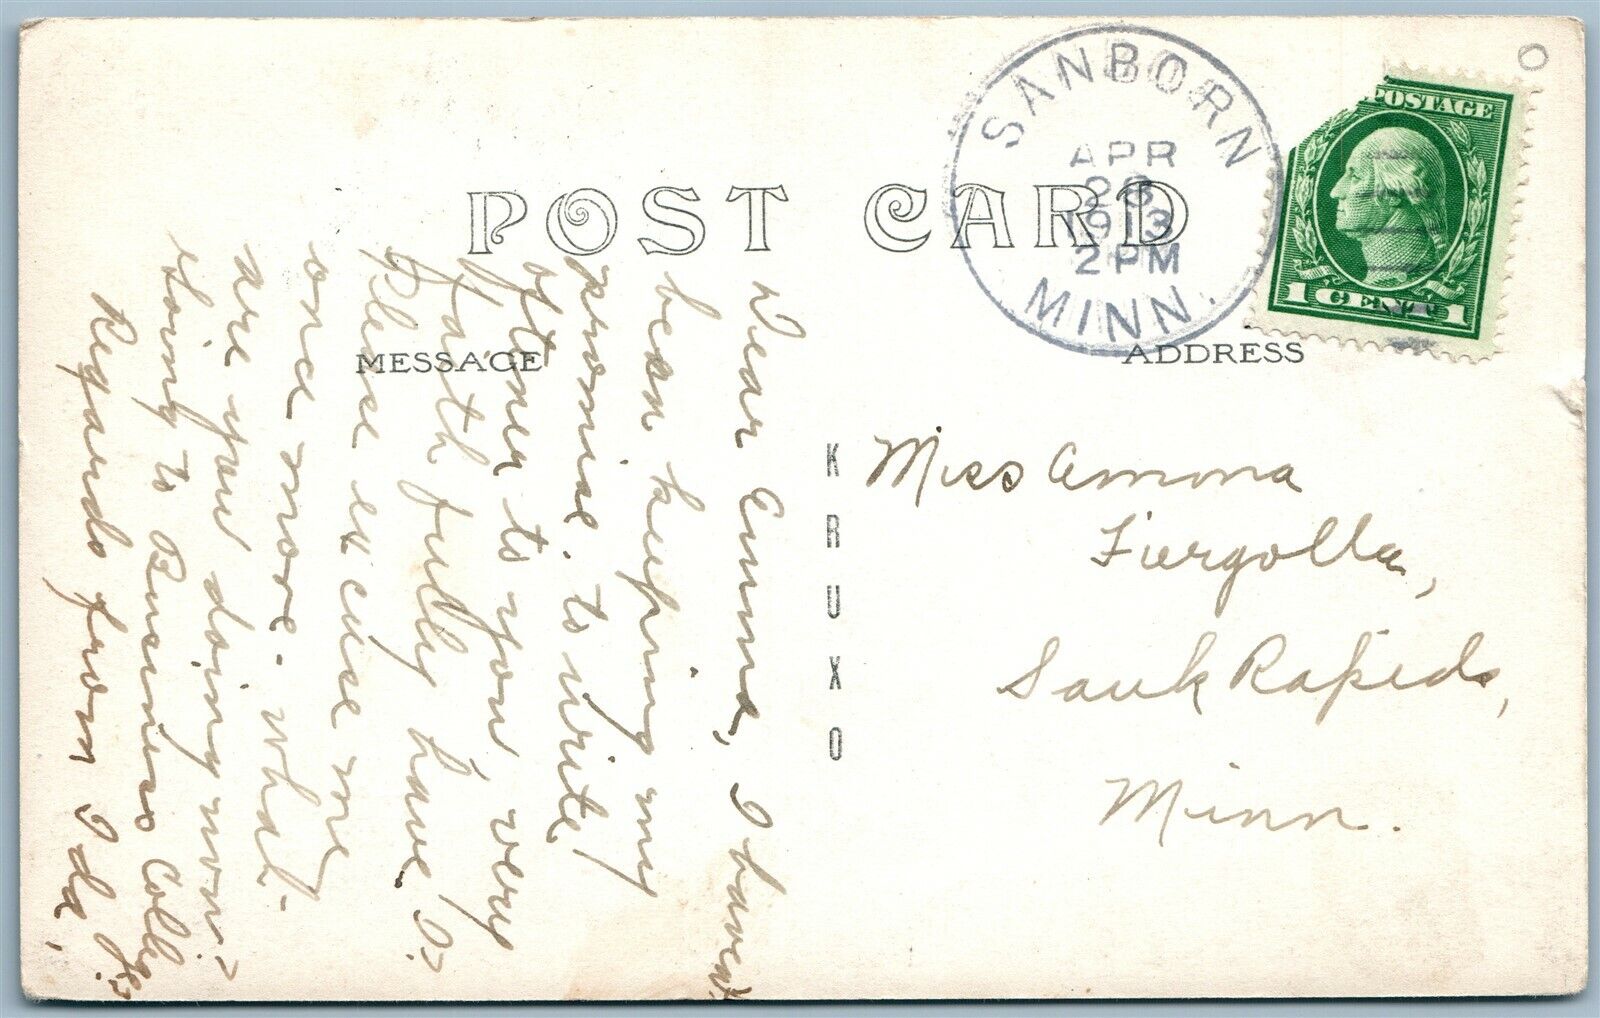 POST CARD
SANBORN
APR
28
1913
2 PM
MINN.
POSTAGE
1 CENT 1
MESSAGE
ADDRESS
KRUXO
Dear Anna, I havent
bean keeping my
promise. to write
oftener to you very
faith fully have I?
Please ex cuse me
once more - what
are you doing now?
Going to Business College?
Regards from Ida,
Miss Anna
Fiergolla,
Sauk Rapids,
Minn.